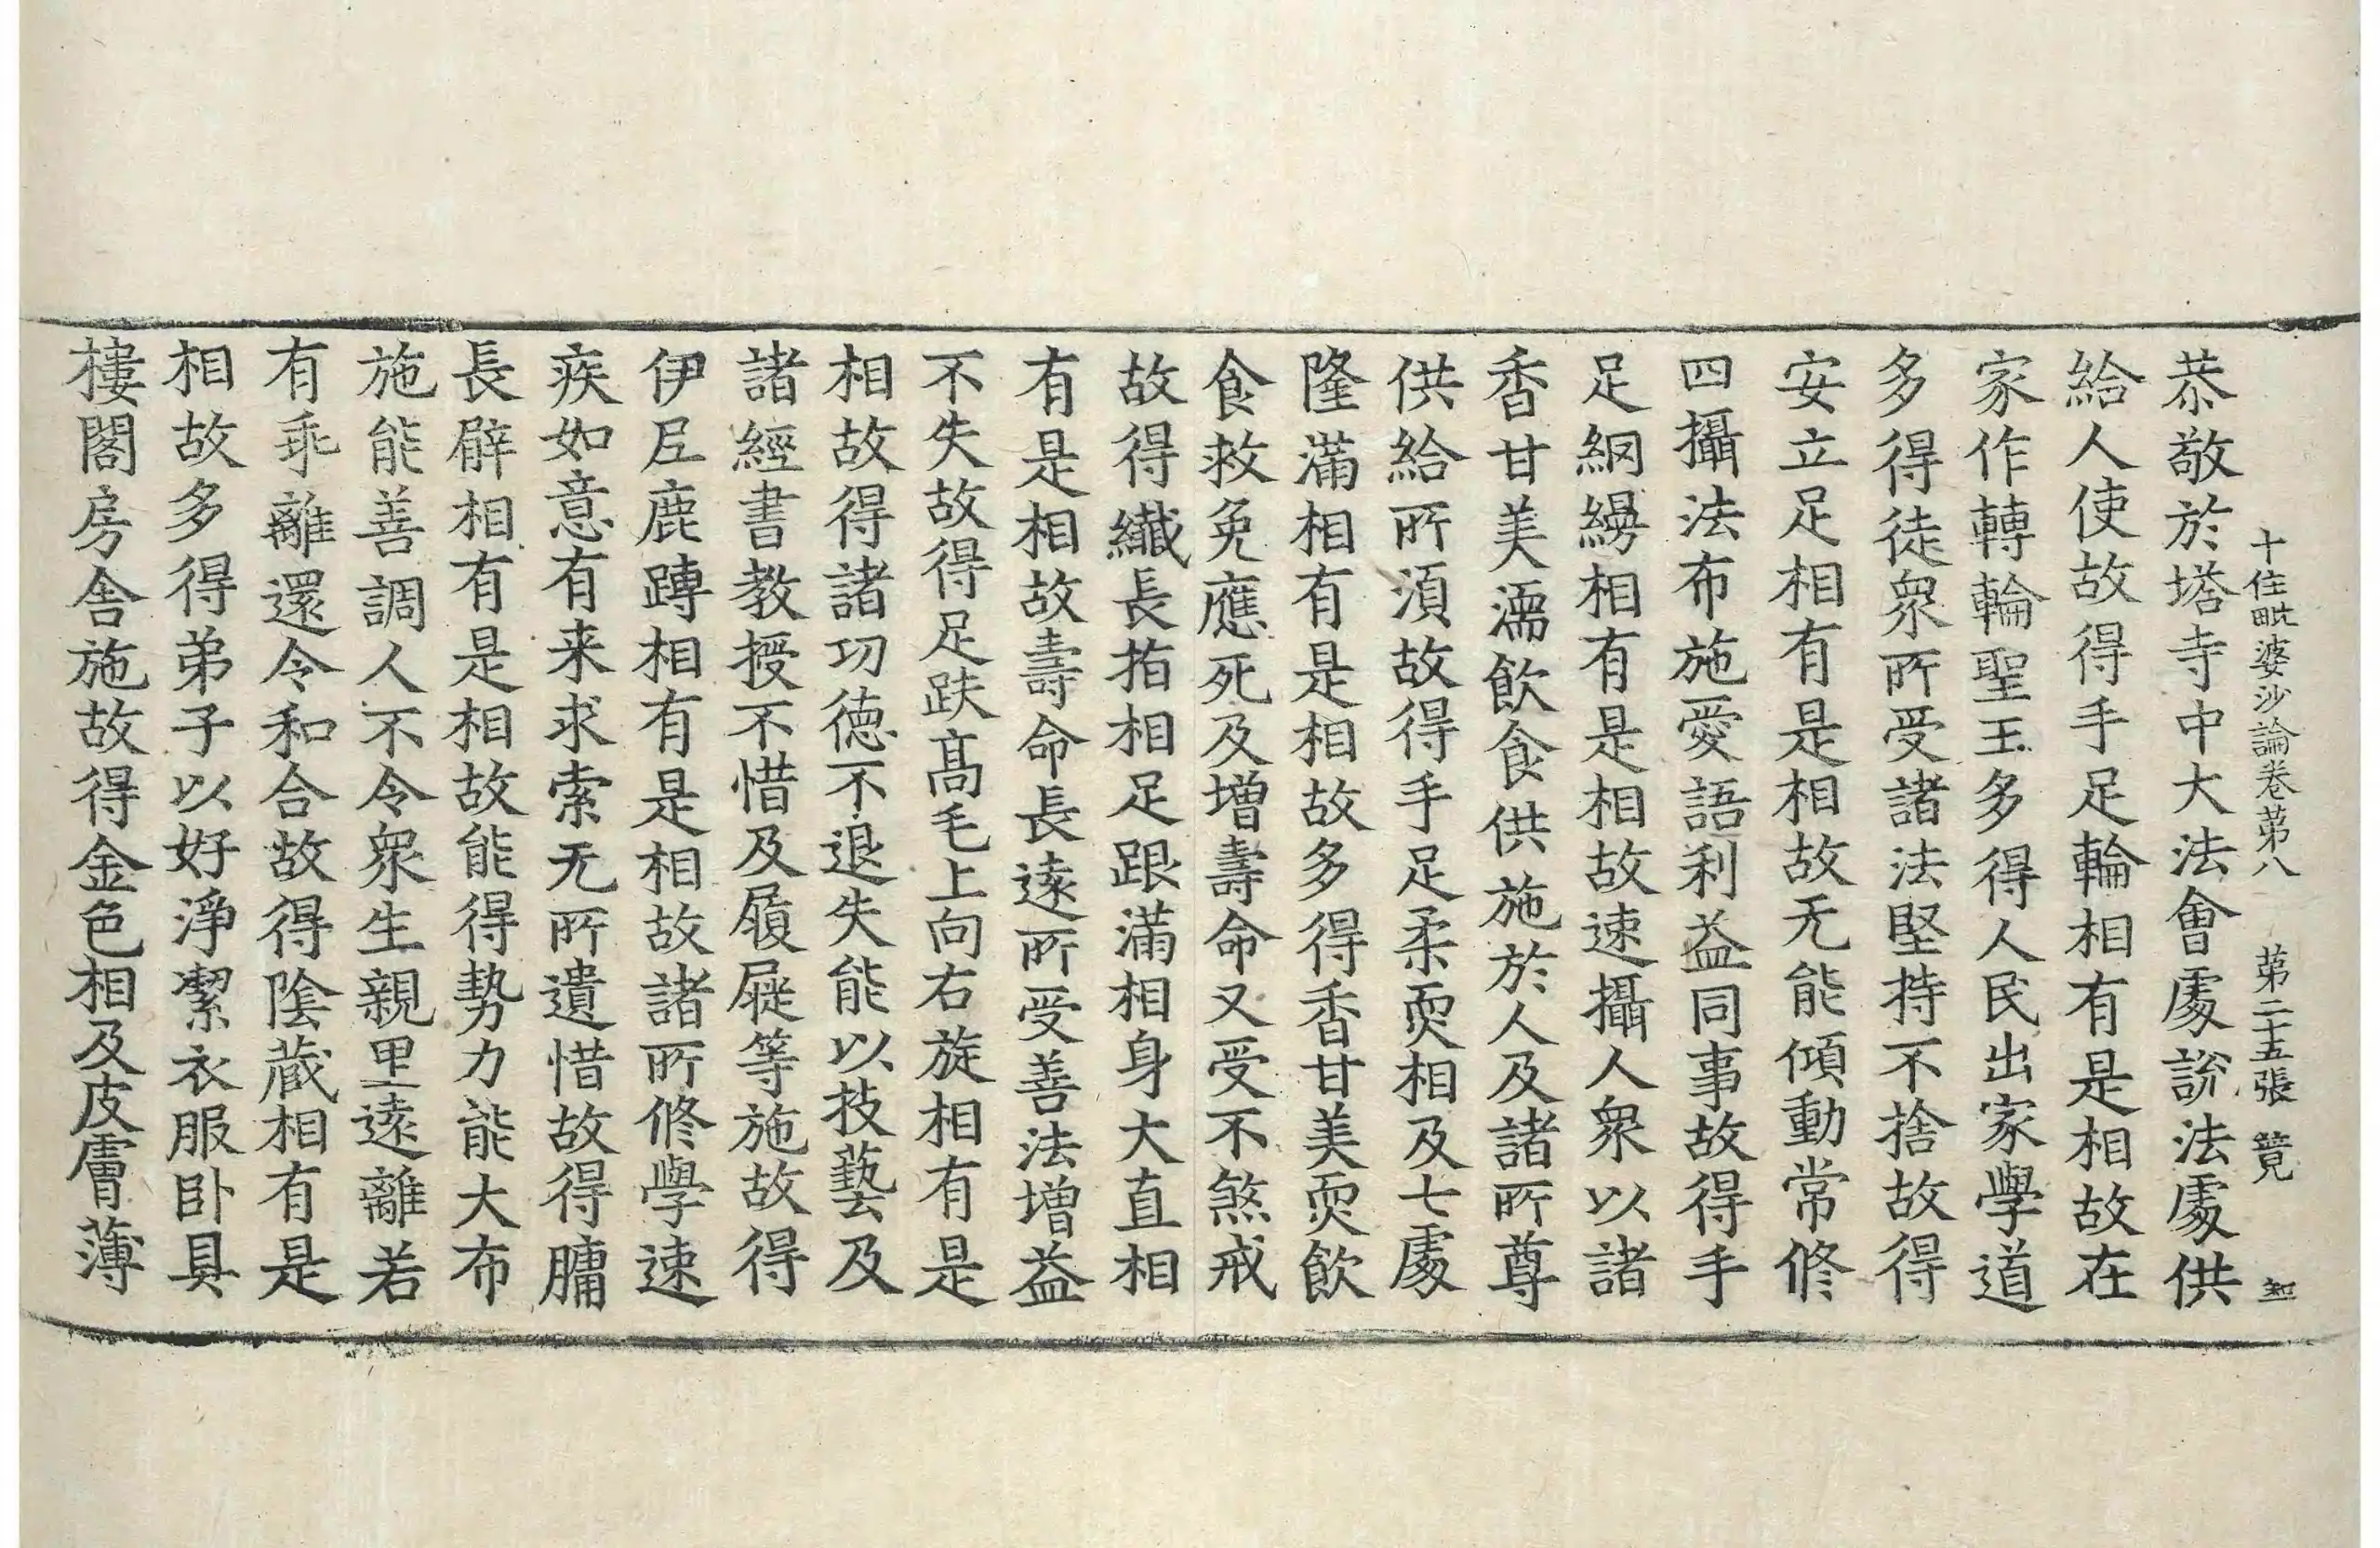 十住毗婆沙論卷苐八 苐二十五張 竟
恭敬於塔寺中大法會處說法處供
給人使故得手足輪相有是相故在
家作轉輪聖王多得人民出家學道
多得徒衆所受諸法堅持不捨故得
安立足相有是相故无能傾動常修
四攝法布施愛語利益同事故得手
足網縵相有是相故速攝人衆以諸
香甘美濡飲食供施於人及諸所尊
供給所湏故得手足柔耎相及七處
隆滿相有是相故多得香甘美耎飲
食救免應死及增壽命又受不煞戒
故得纎長指相足跟滿相身大直相
有是相故壽命長逺所受善法增益
不失故得足趺髙毛上向右旋相有是
相故得諸功德不退失能以技藝及
諸經書教授不惜及履屣等施故得
伊尼鹿蹲相有是相故諸所修學速
疾如意有来求索无所遺惜故得𦟛
長臂相有是相故能得勢力能大布
施能善調人不令衆生親里逺離若
有乖離還令和合故得陰藏相有是
相故多得弟子以好淨潔衣服卧具
樓閣房舍施故得金色相及皮膚薄